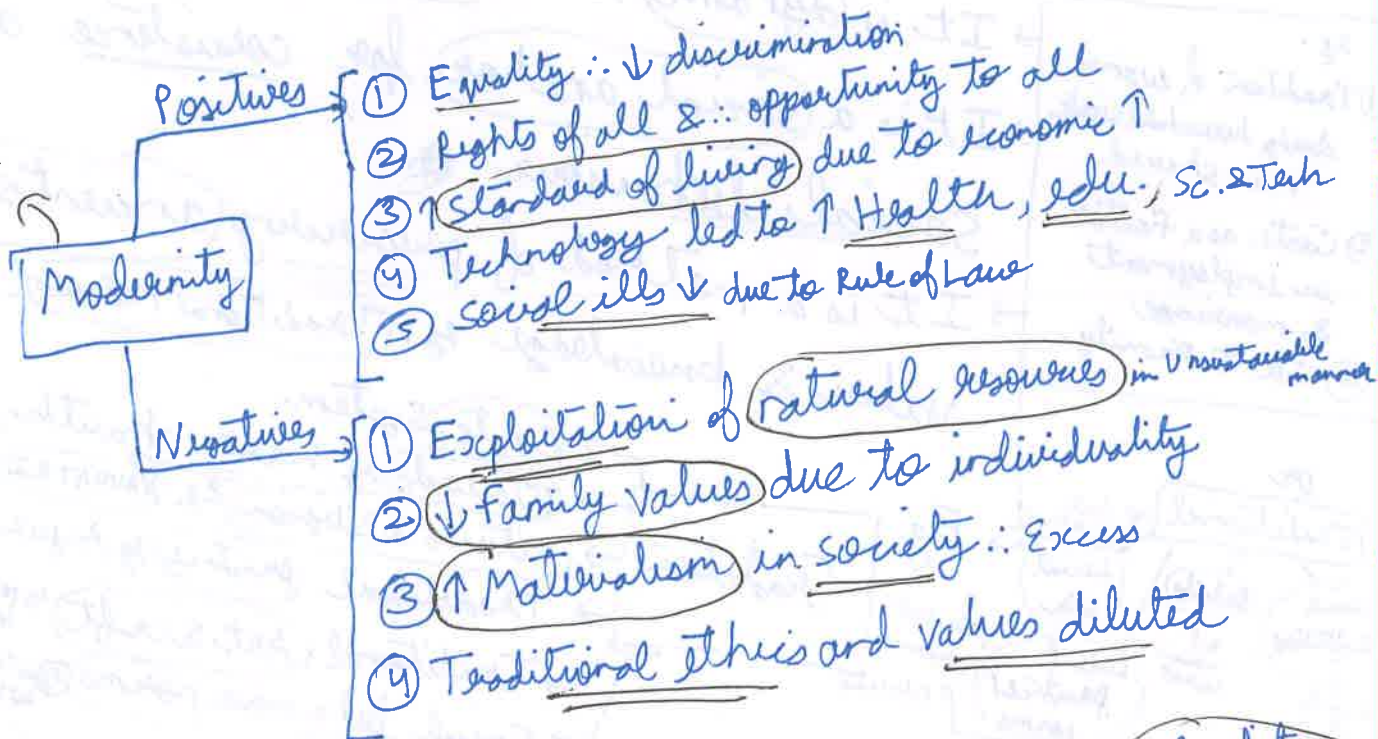 Modernity
Positives
① Equality ∴ ↓ discrimination
② Rights of all & ∴ opportunity to all
③ ↑ Standard of living due to economic ↑
④ Technology led to ↑ Health, edu., Sc. & Tech
⑤ Social ills ↓ due to Rule of Law
Negatives
① Exploitation of natural resources in Unsustainable manner
② ↓ Family Values due to individuality
③ ↑ Materialism in society ∴ Excess
④ Traditional ethics and values diluted